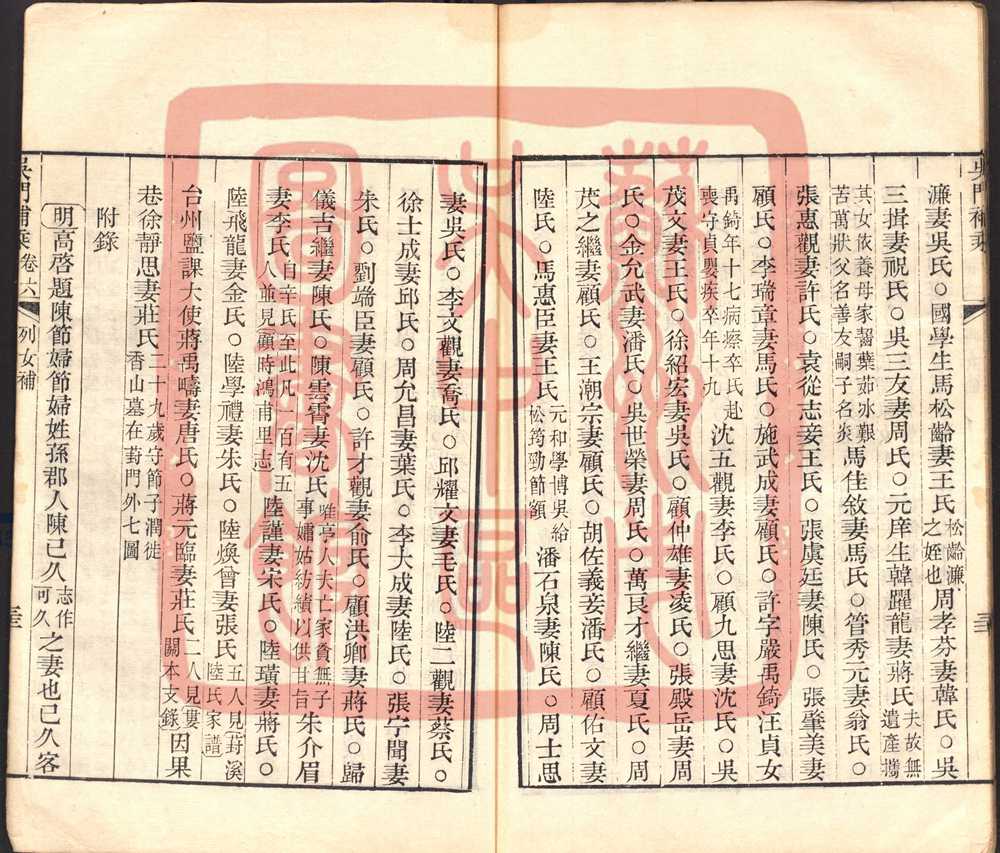 吳門補乘
濂妻吳氏○國學生馬松齡妻王氏松齡濂之姪也周孝芬妻韓氏○吳
三揖妻祝氏○吳三友妻周氏○元庠生韓躍龍妻蔣氏夫故無遺產攜
其女依養母家齧蘗茹冰艱苦萬狀父名善友嗣子名炎馬佳敘妻馬氏○管秀元妻翁氏○
張惠觀妻許氏○袁從志妾王氏○張虞廷妻陳氏○張肇美妻
顧氏○李瑞章妻馬氏○施武成妻顧氏○許字嚴禹錡汪貞女
禹錡年十七病瘵卒氏赴喪守貞嬰疾卒年十九沈五觀妻李氏○顧九思妻沈氏○吳
茂文妻王氏○徐紹宏妻吳氏○顧仲雄妻凌氏○張殿岳妻周
氏○金允武妻潘氏○吳世榮妻周氏○萬艮才繼妻夏氏○周
茂之繼妻顧氏○王潮宗妻顧氏○胡佐義妾潘氏○顧佑文妻
陸氏○馬惠臣妻王氏元和學博吳給松筠勁節額潘石泉妻陳氏○周士思
妻吳氏○李文觀妻喬氏○邱耀文妻毛氏○陸二觀妻蔡氏○
徐士成妻邱氏○周允昌妻葉氏○李大成妻陸氏○張宁聞妻
朱氏○劉端臣妻顧氏○許才觀妻俞氏○顧洪卿妻蔣氏○歸
儀吉繼妻陳氏○陳雲霄妻沈氏唯亭人夫亡家貧無子事孀姑紡績以供甘旨朱介眉
妻李氏自辛氏至此凡一百有五人並見顧時鴻甫里志陸謹妻宋氏○陸璜妻蔣氏○
陸飛龍妻金氏○陸學禮妻朱氏○陸煥曾妻張氏五人見葑溪陸氏家譜
台州鹽課大使蔣禹疇妻唐氏○蔣元臨妻莊氏二人見婁關本支錄因果
巷徐靜思妻莊氏二十九歲守節子潤徙香山墓在葑門外七圖
附錄
明高啓題陳節婦節婦姓孫郡人陳己久志作可久之妻也己久客
吳門補乘 卷六 列女補